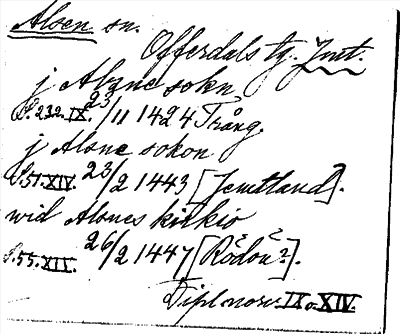 Alsen sn.
Offerdals tg. Jmt.
j Alsne sokn
S. 232. IX. 23/11 1424 Trång.
j Alsne sokon
S. 51. XIV. 23/2 1443 [Jemtland].
wid Alsnes kirkio
S. 55. XIV. 26/2 1447 [Rödön?].
Dipl. norv. IX o. XIV.